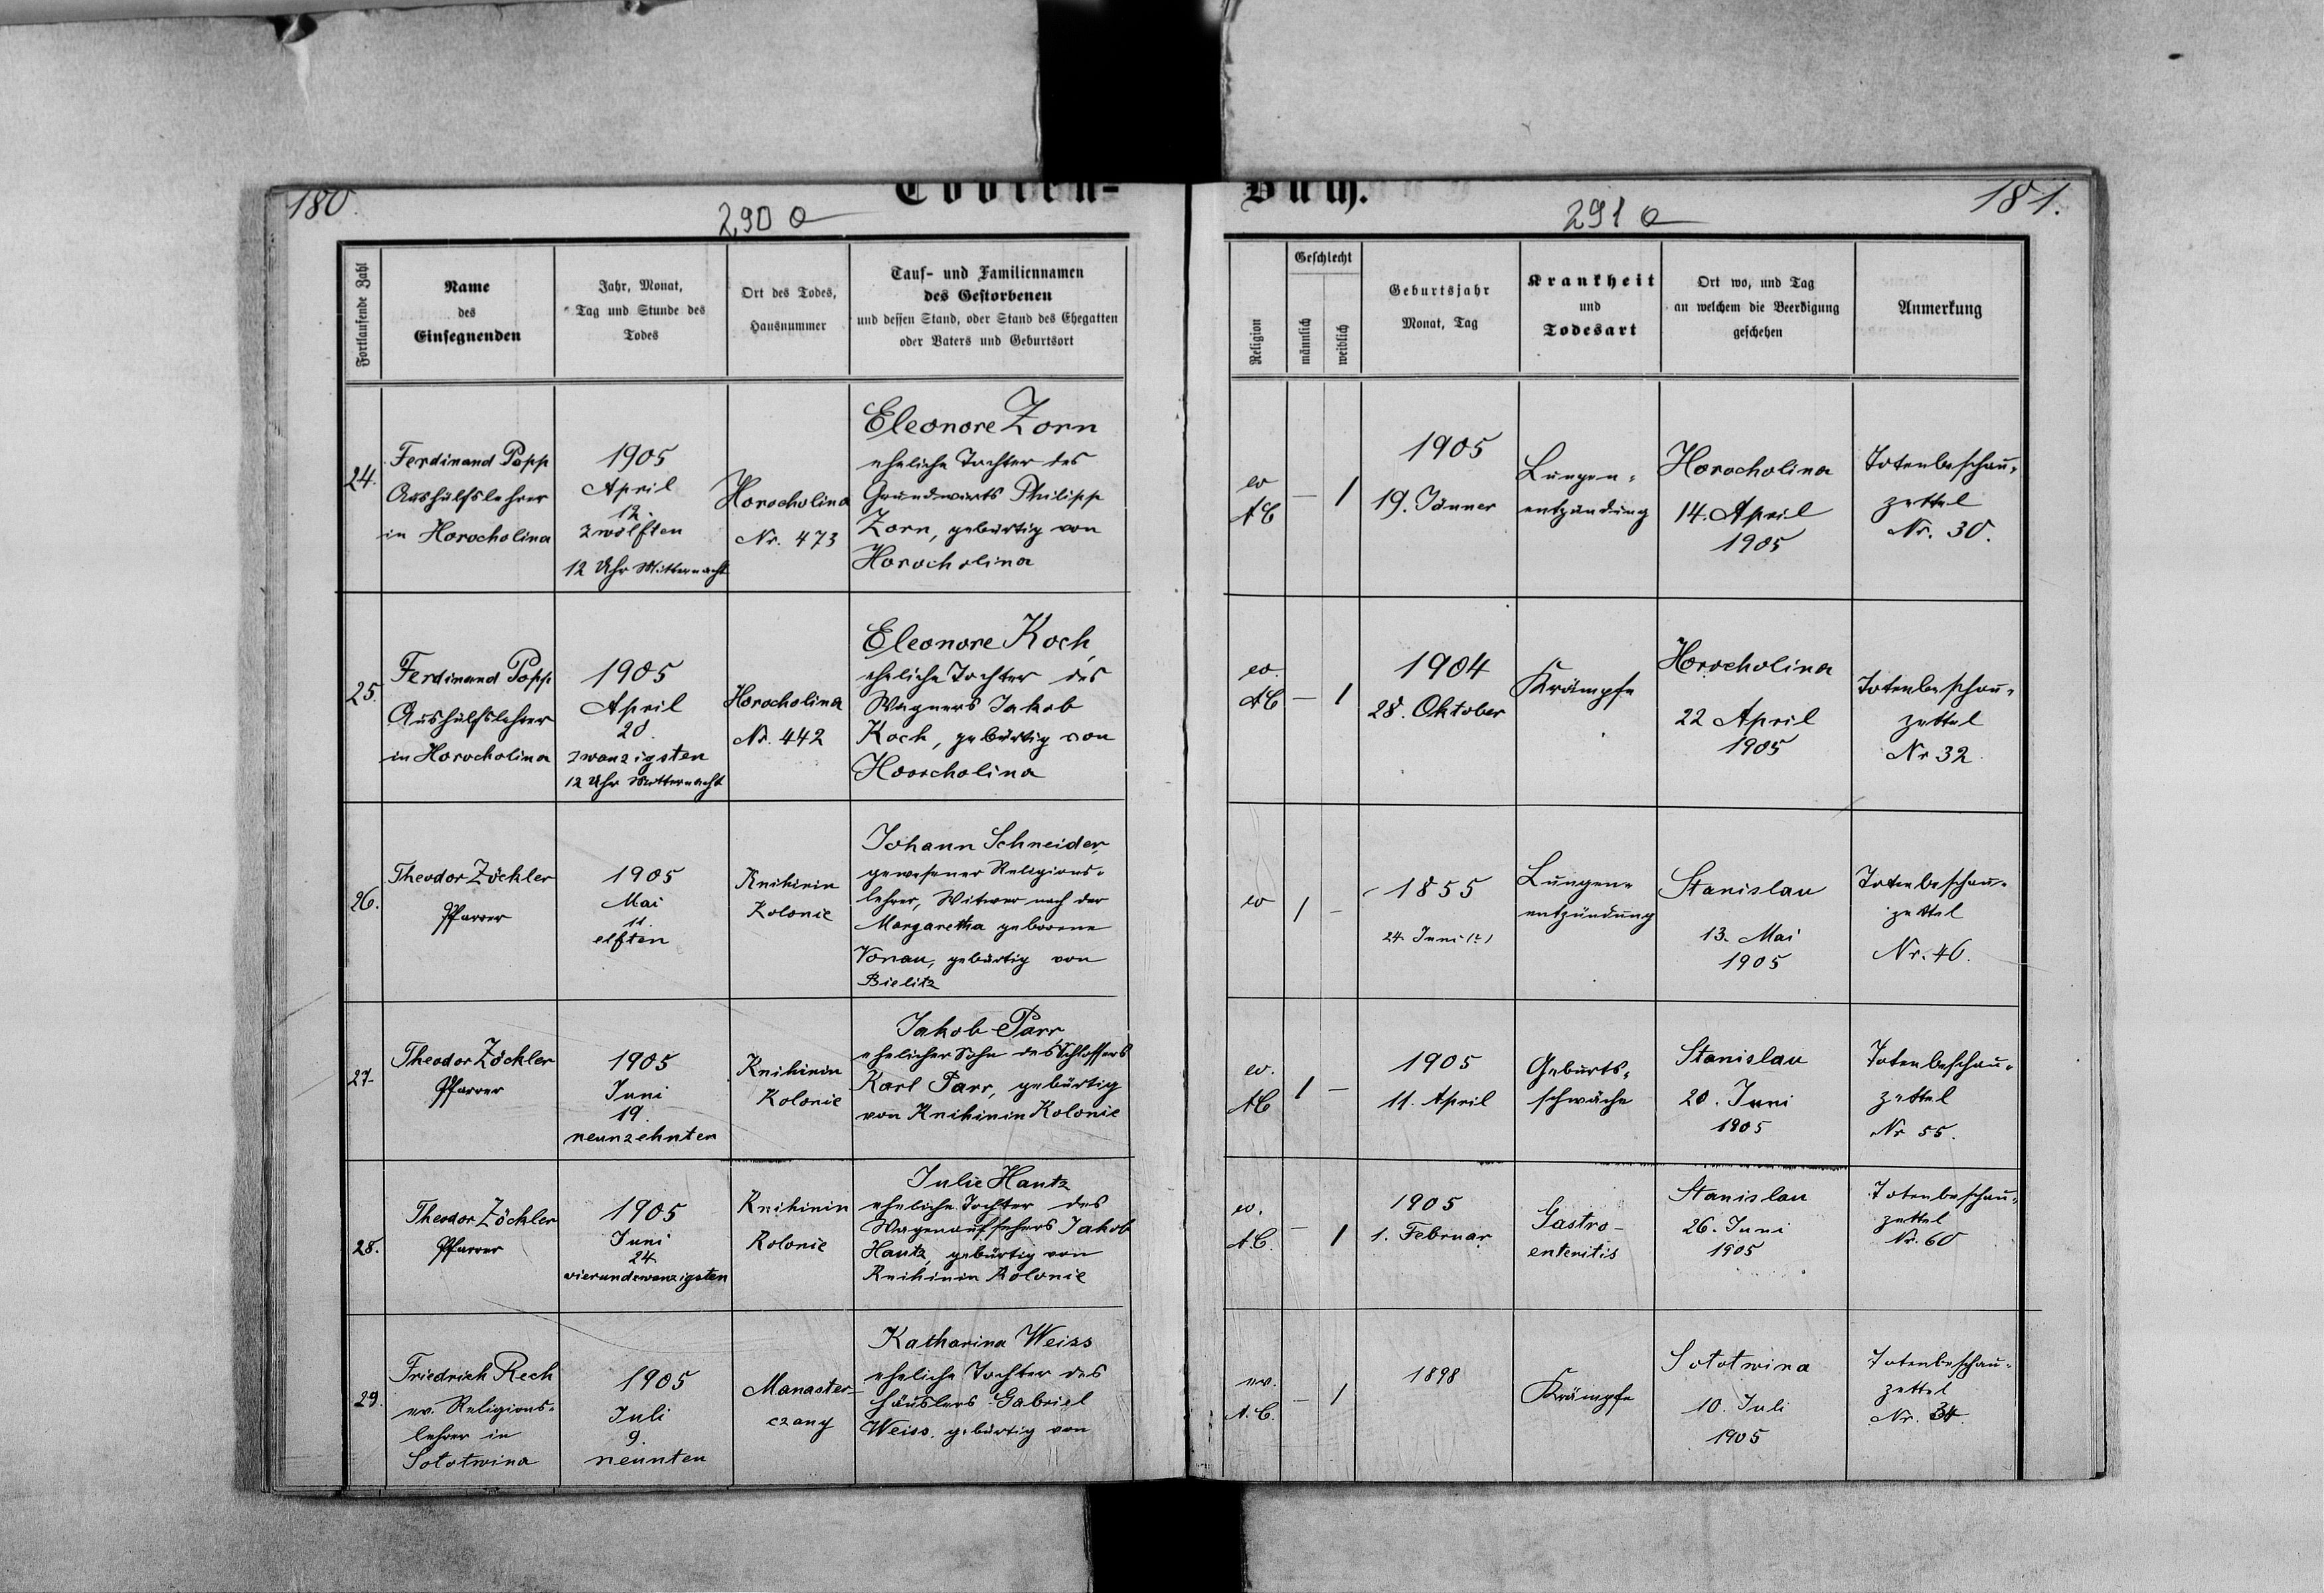 180.
Todten-
Buch.
181.
290 a
291 a
Fortlaufende Zahl
Name
des
Einsegnenden
Jahr, Monat,
Tag und Stunde des
Todes
Ort des Todes,
Hausnummer
Tauf- und Familiennamen
des Gestorbenen
und dessen Stand, oder Stand des Ehegatten
oder Vaters und Geburtsort
Religion
Geschlecht
männlich
weiblich
Geburtsjahr
Monat, Tag
Krankheit
und
Todesart
Ort wo, und Tag
an welchem die Beerdigung
geschehen
Anmerkung
24.
Ferdinand Popp
Aushülfslehrer
in Horocholina
1905
April
12.
zwölften
12 Uhr Mitternacht
Horocholina
Nr. 473
Eleonore Zorn
eheliche Tochter des
Grundwirts Philipp
Zorn, gebürtig von
Horocholina
ev
AC
— 1
1905
19. Jänner
Lungen-
entzündung
Horocholina
14. April
1905
Totenbeschau-
zettel
Nr. 30.
25.
Ferdinand Popp
Aushülfslehrer
in Horocholina
1905
April
20.
zwanzigsten
12 Uhr Mitternacht
Horocholina
Nr. 442
Eleonore Koch,
eheliche Tochter des
Wagners Jakob
Koch, gebürtig von
Horocholina
ev.
AC
— 1
1904
28. Oktober
Krämpfe
Horocholina
22 April
1905
Totenbeschau-
zettel
Nr 32.
26.
Theodor Zöckler
Pfarrer
1905
Mai
11.
elften
Knihinin
Kolonie
Johann Schneider,
gewesener Religions-
lehrer, Witwer nach der
Margaretha geborene
Vonau, gebürtig von
Bielitz
ev
1 —
1855
24. Juni (?)
Lungen-
entzündung
Stanislau
13. Mai
1905
Totenbeschau-
zettel
Nr. 40.
27.
Theodor Zöckler
Pfarrer
1905
Juni
19.
neunzehnten
Knihinin
Kolonie
Jakob Parr,
ehelicher Sohn des Schlossers
Karl Parr, gebürtig
von Knihinin Kolonie
ev.
AC
1 —
1905
11. April
Geburts-
schwäche
Stanislau
20. Juni
1905
Totenbeschau-
zettel
Nr 55.
28.
Theodor Zöckler
Pfarrer
1905
Juni
24.
vierundzwanzigsten
Knihinin
Kolonie
Julie Hautz
eheliche Tochter des
Wagenaufsehers Jakob
Hautz, gebürtig von
Knihinin Kolonie
ev.
A.C.
— 1
1905
1. Februar
Gastro-
enteritis
Stanislau
26. Juni
1905
Totenbeschau-
zettel
Nr. 60
29.
Friedrich Rech
ev. Religions-
lehrer in
Solotwina
1905
Juli
9.
neunten
Manaster-
czany
Katharina Weiss
eheliche Tochter des
Häuslers Gabriel
Weiss, gebürtig von
ev.
A.C.
— 1
1898
Krämpfe
Solotwina
10. Juli
1905
Totenbeschau-
zettel
Nr. 34.